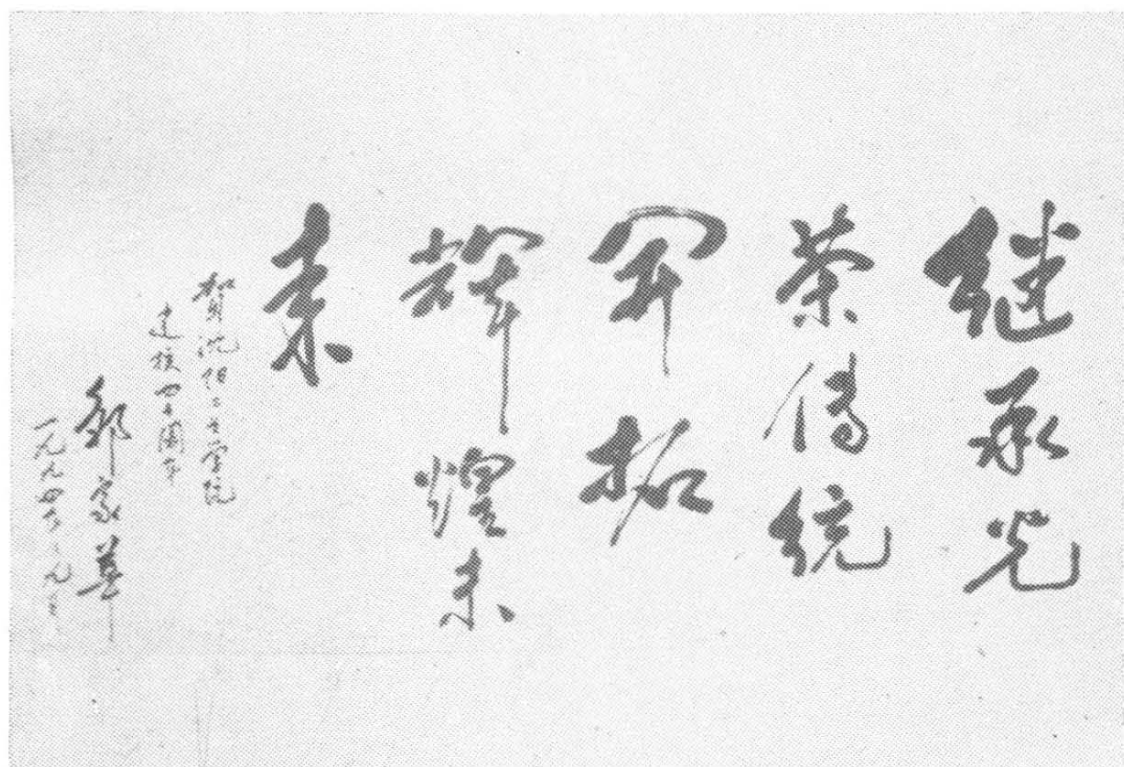 继承光
荣传统
开拓
辉煌未
来
贺沈阳工业学院
建校四十周年
邹家华
一九九四年六月九日